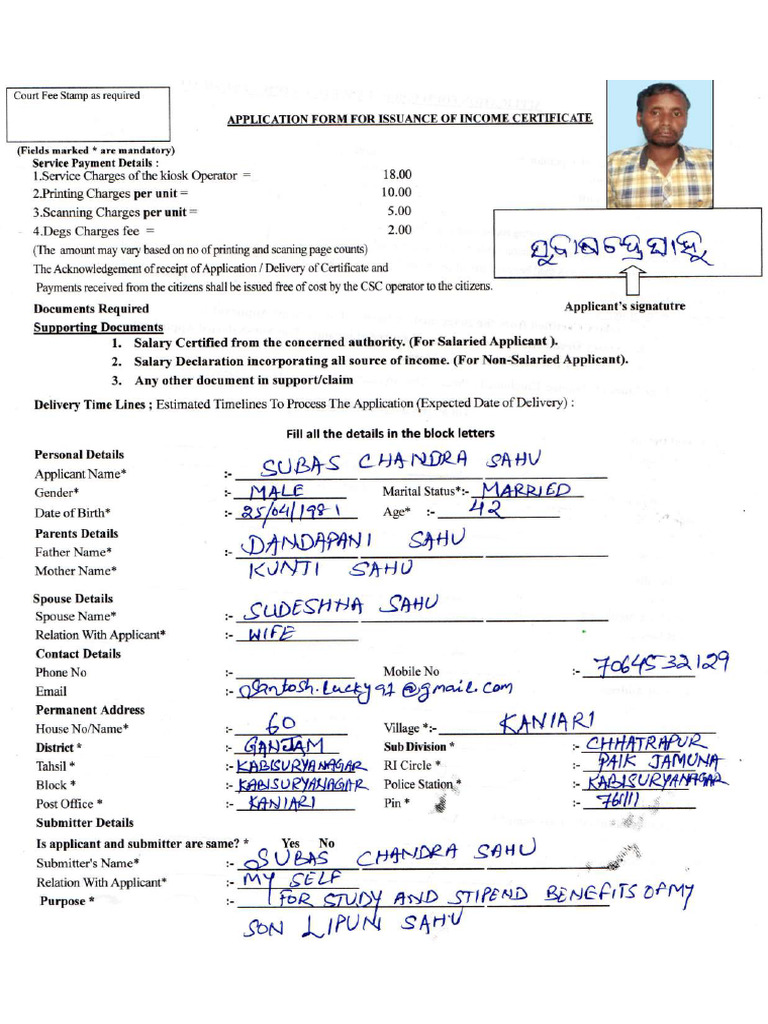 Court Fee Stamp as required
APPLICATION FORM FOR ISSUANCE OF INCOME CERTIFICATE
(Fields marked * are mandatory)
Service Payment Details :
1.Service Charges of the kiosk Operator = 18.00
2.Printing Charges per unit = 10.00
3.Scanning Charges per unit = 5.00
4.Degs Charges fee = 2.00
(The amount may vary based on no of printing and scaning page counts)
The Acknowledgement of receipt of Application / Delivery of Certificate and
Payments received from the citizens shall be issued free of cost by the CSC operator to the citizens.
Applicant's signatutre
Documents Required
Supporting Documents
1. Salary Certified from the concerned authority. (For Salaried Applicant ).
2. Salary Declaration incorporating all source of income. (For Non-Salaried Applicant).
3. Any other document in support/claim
Delivery Time Lines ; Estimated Timelines To Process The Application (Expected Date of Delivery) :
Fill all the details in the block letters
Personal Details
Applicant Name* :- SUBAS CHANDRA SAHU
Gender* :- MALE Marital Status*:- MARRIED
Date of Birth* :- 25/04/1981 Age* :- 42
Parents Details
Father Name* :- DANDAPANI SAHU
Mother Name* KUNTI SAHU
Spouse Details
Spouse Name* :- SUDESHNA SAHU
Relation With Applicant* :- WIFE
Contact Details
Phone No :- Mobile No :- 7064532129
Email :- Santosh.lucky91@gmail.com
Permanent Address
House No/Name* :- 60 Village *:- KANIARI
District * :- GANJAM Sub Division * :- CHHATRAPUR
Tahsil * :- KABISURYANAGAR RI Circle * :- PAIK JAMUNA
Block * :- KABISURYANAGAR Police Station * :- KABISURYANAGAR
Post Office * :- KANIARI Pin * :- 761111
Submitter Details
Is applicant and submitter are same? * Yes No
Submitter's Name* :- SUBAS CHANDRA SAHU
Relation With Applicant* :- MY SELF
Purpose * :- FOR STUDY AND STIPEND BENEFITS OF MY
SON LIPUN SAHU